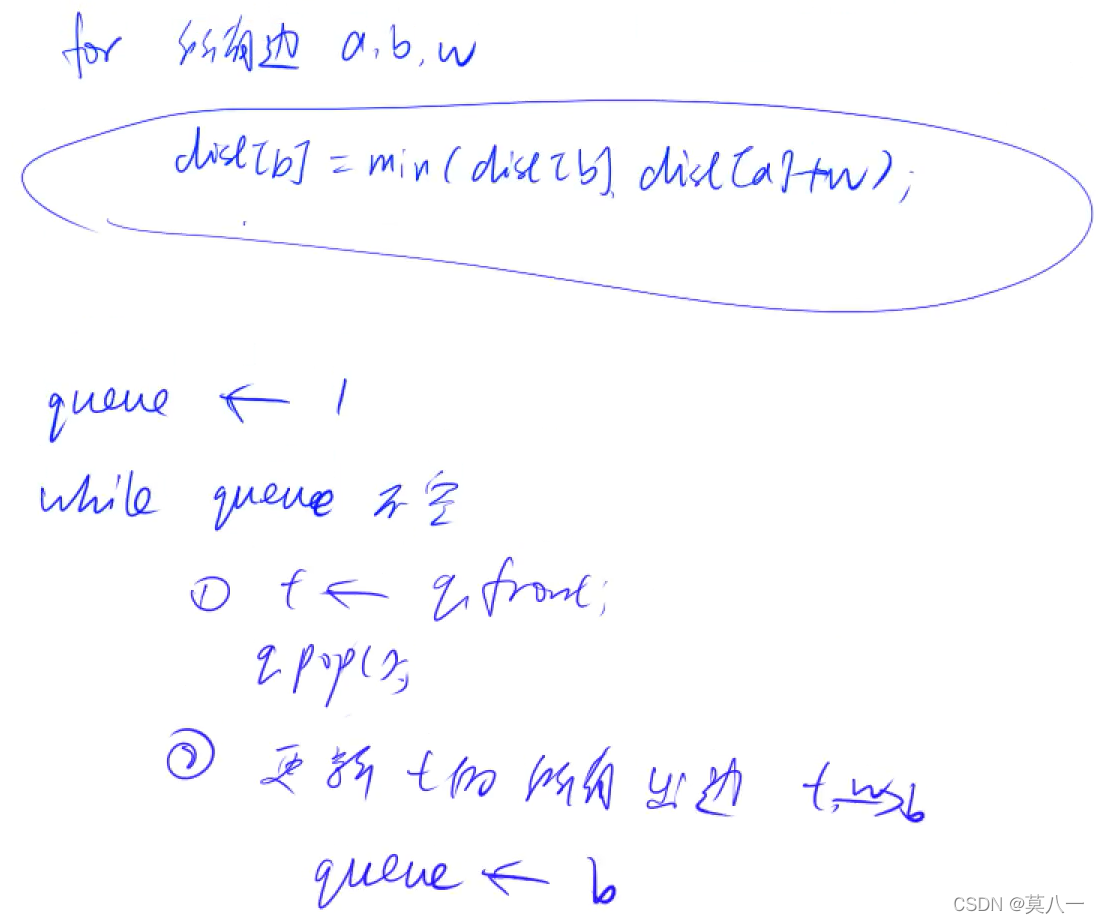 for 所有边 a,b,w
dist[b] = min(dist[b], dist[a]+w);
queue ← 1
while queue 不空
① t ← q.front;
q.pop();
② 更新 t的 所有 出边 t,w→b
queue ← b
CSDN @莫八一